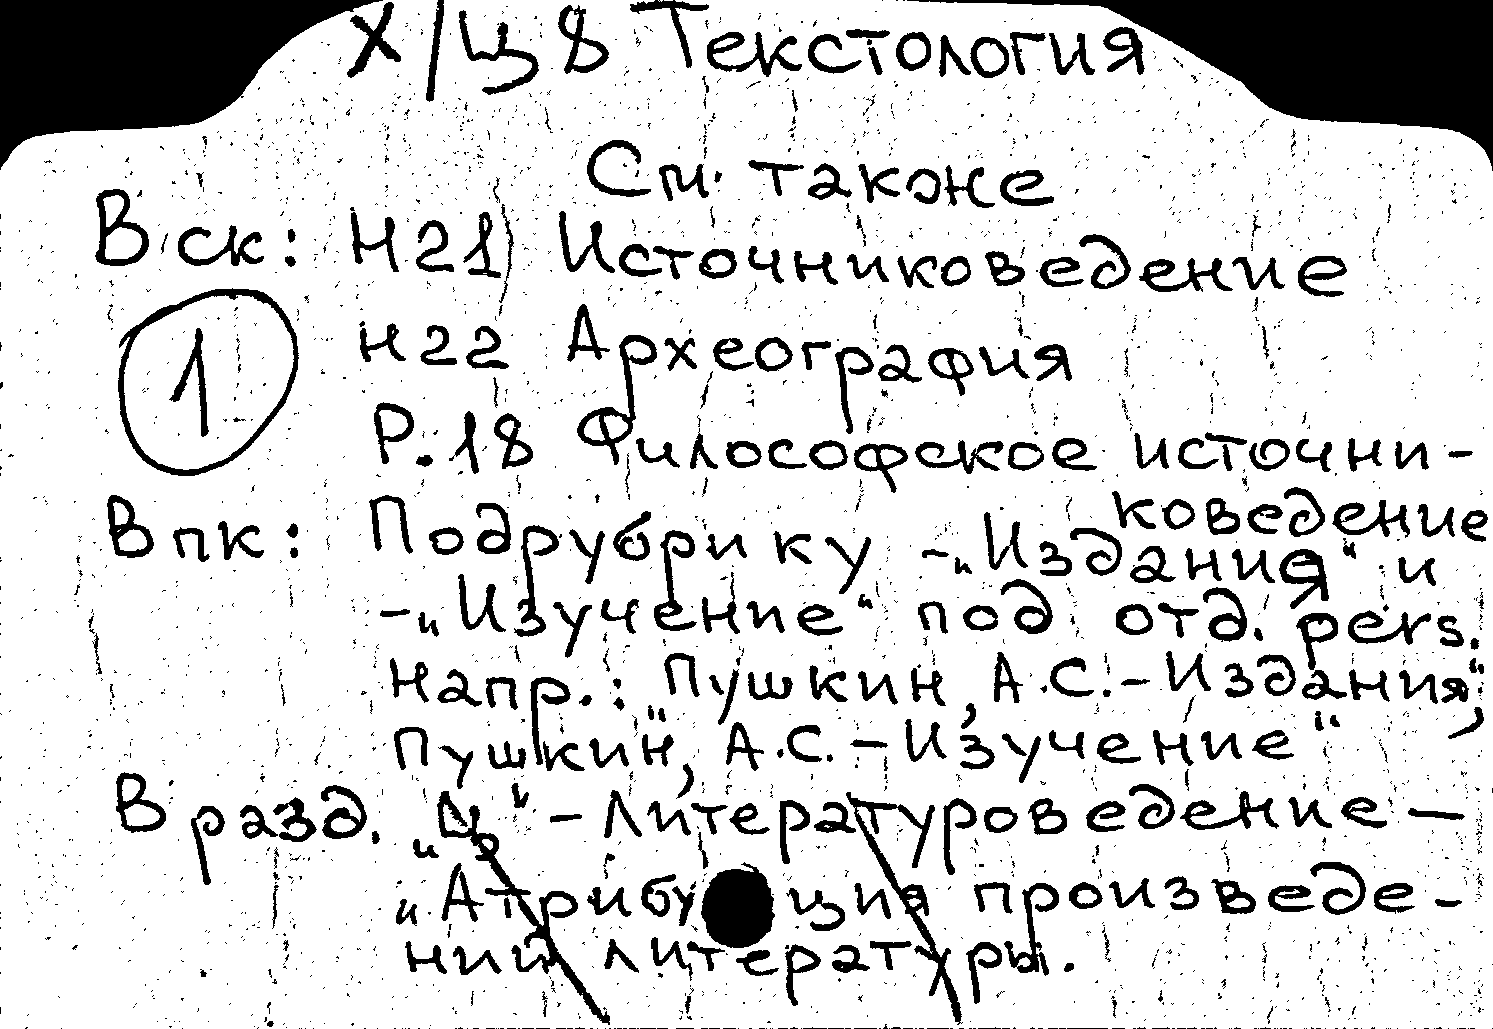 Х/Ц8 Текстология
См. также
В ск: Н21 Источниковедение
① Н22 Археография
Р.18 Философское источни-
коведение
В пк: Подрубрику -„Издания“ и
-„Изучение“ под отд. pers.
Напр.: „Пушкин, А.С.-Издания“,
„Пушкин, А.С.-Изучение“
В разд. „Ц“ - Литературоведение —
„Атрибуция произведе-
ний литературы.